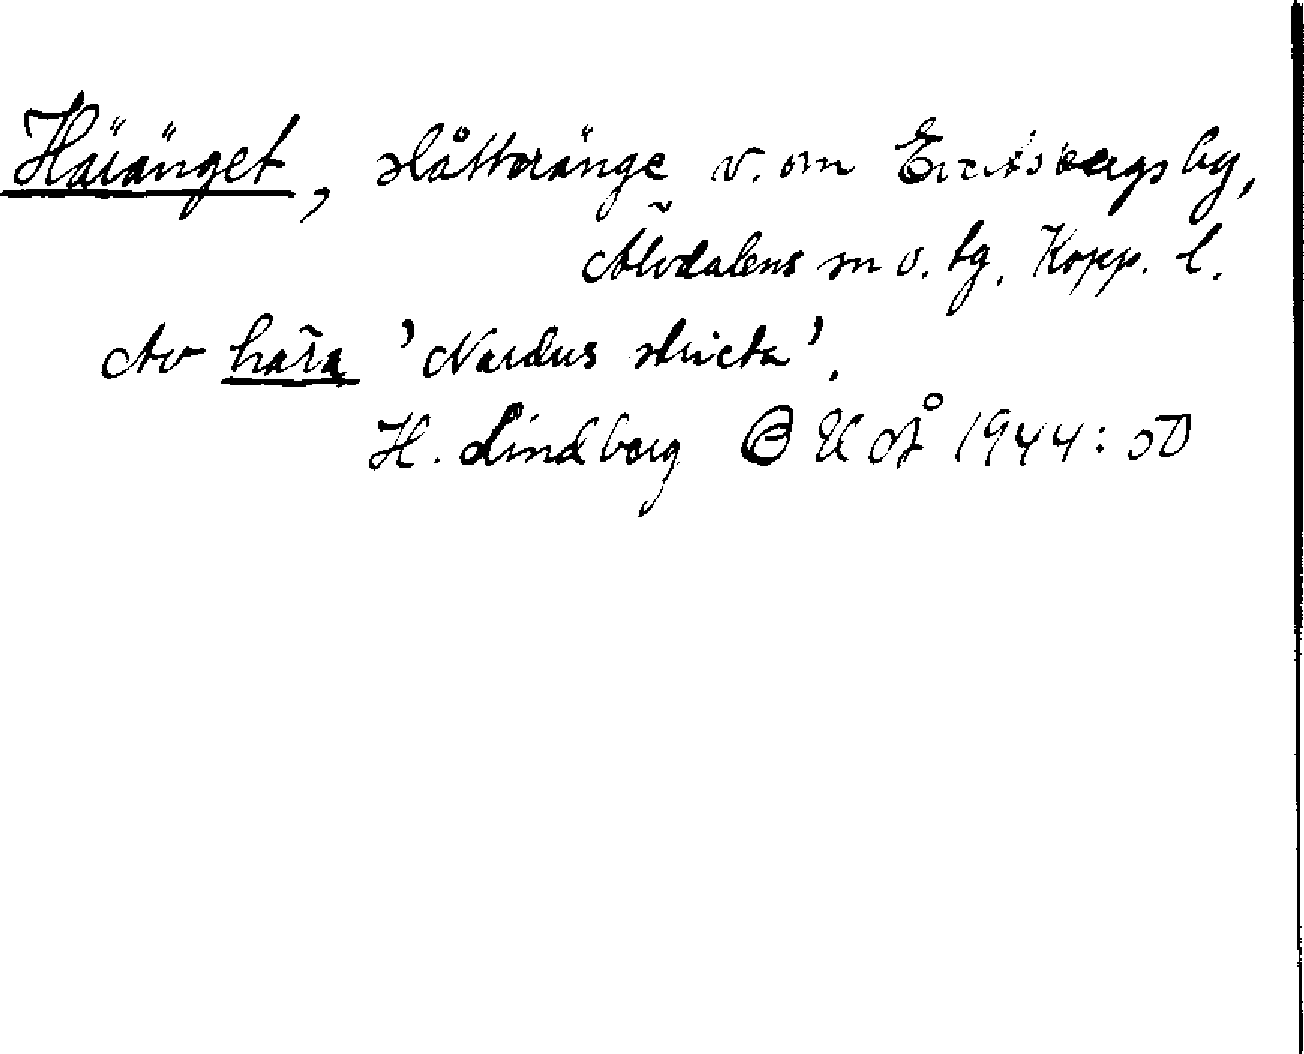 Häränget, slåtteränge v. om Evertsbergs by,
Älvdalens sn o. tg, Kopp. l.
Av hära 'Nardus stricta'.
H. Lindberg BUÅ 1944: 50